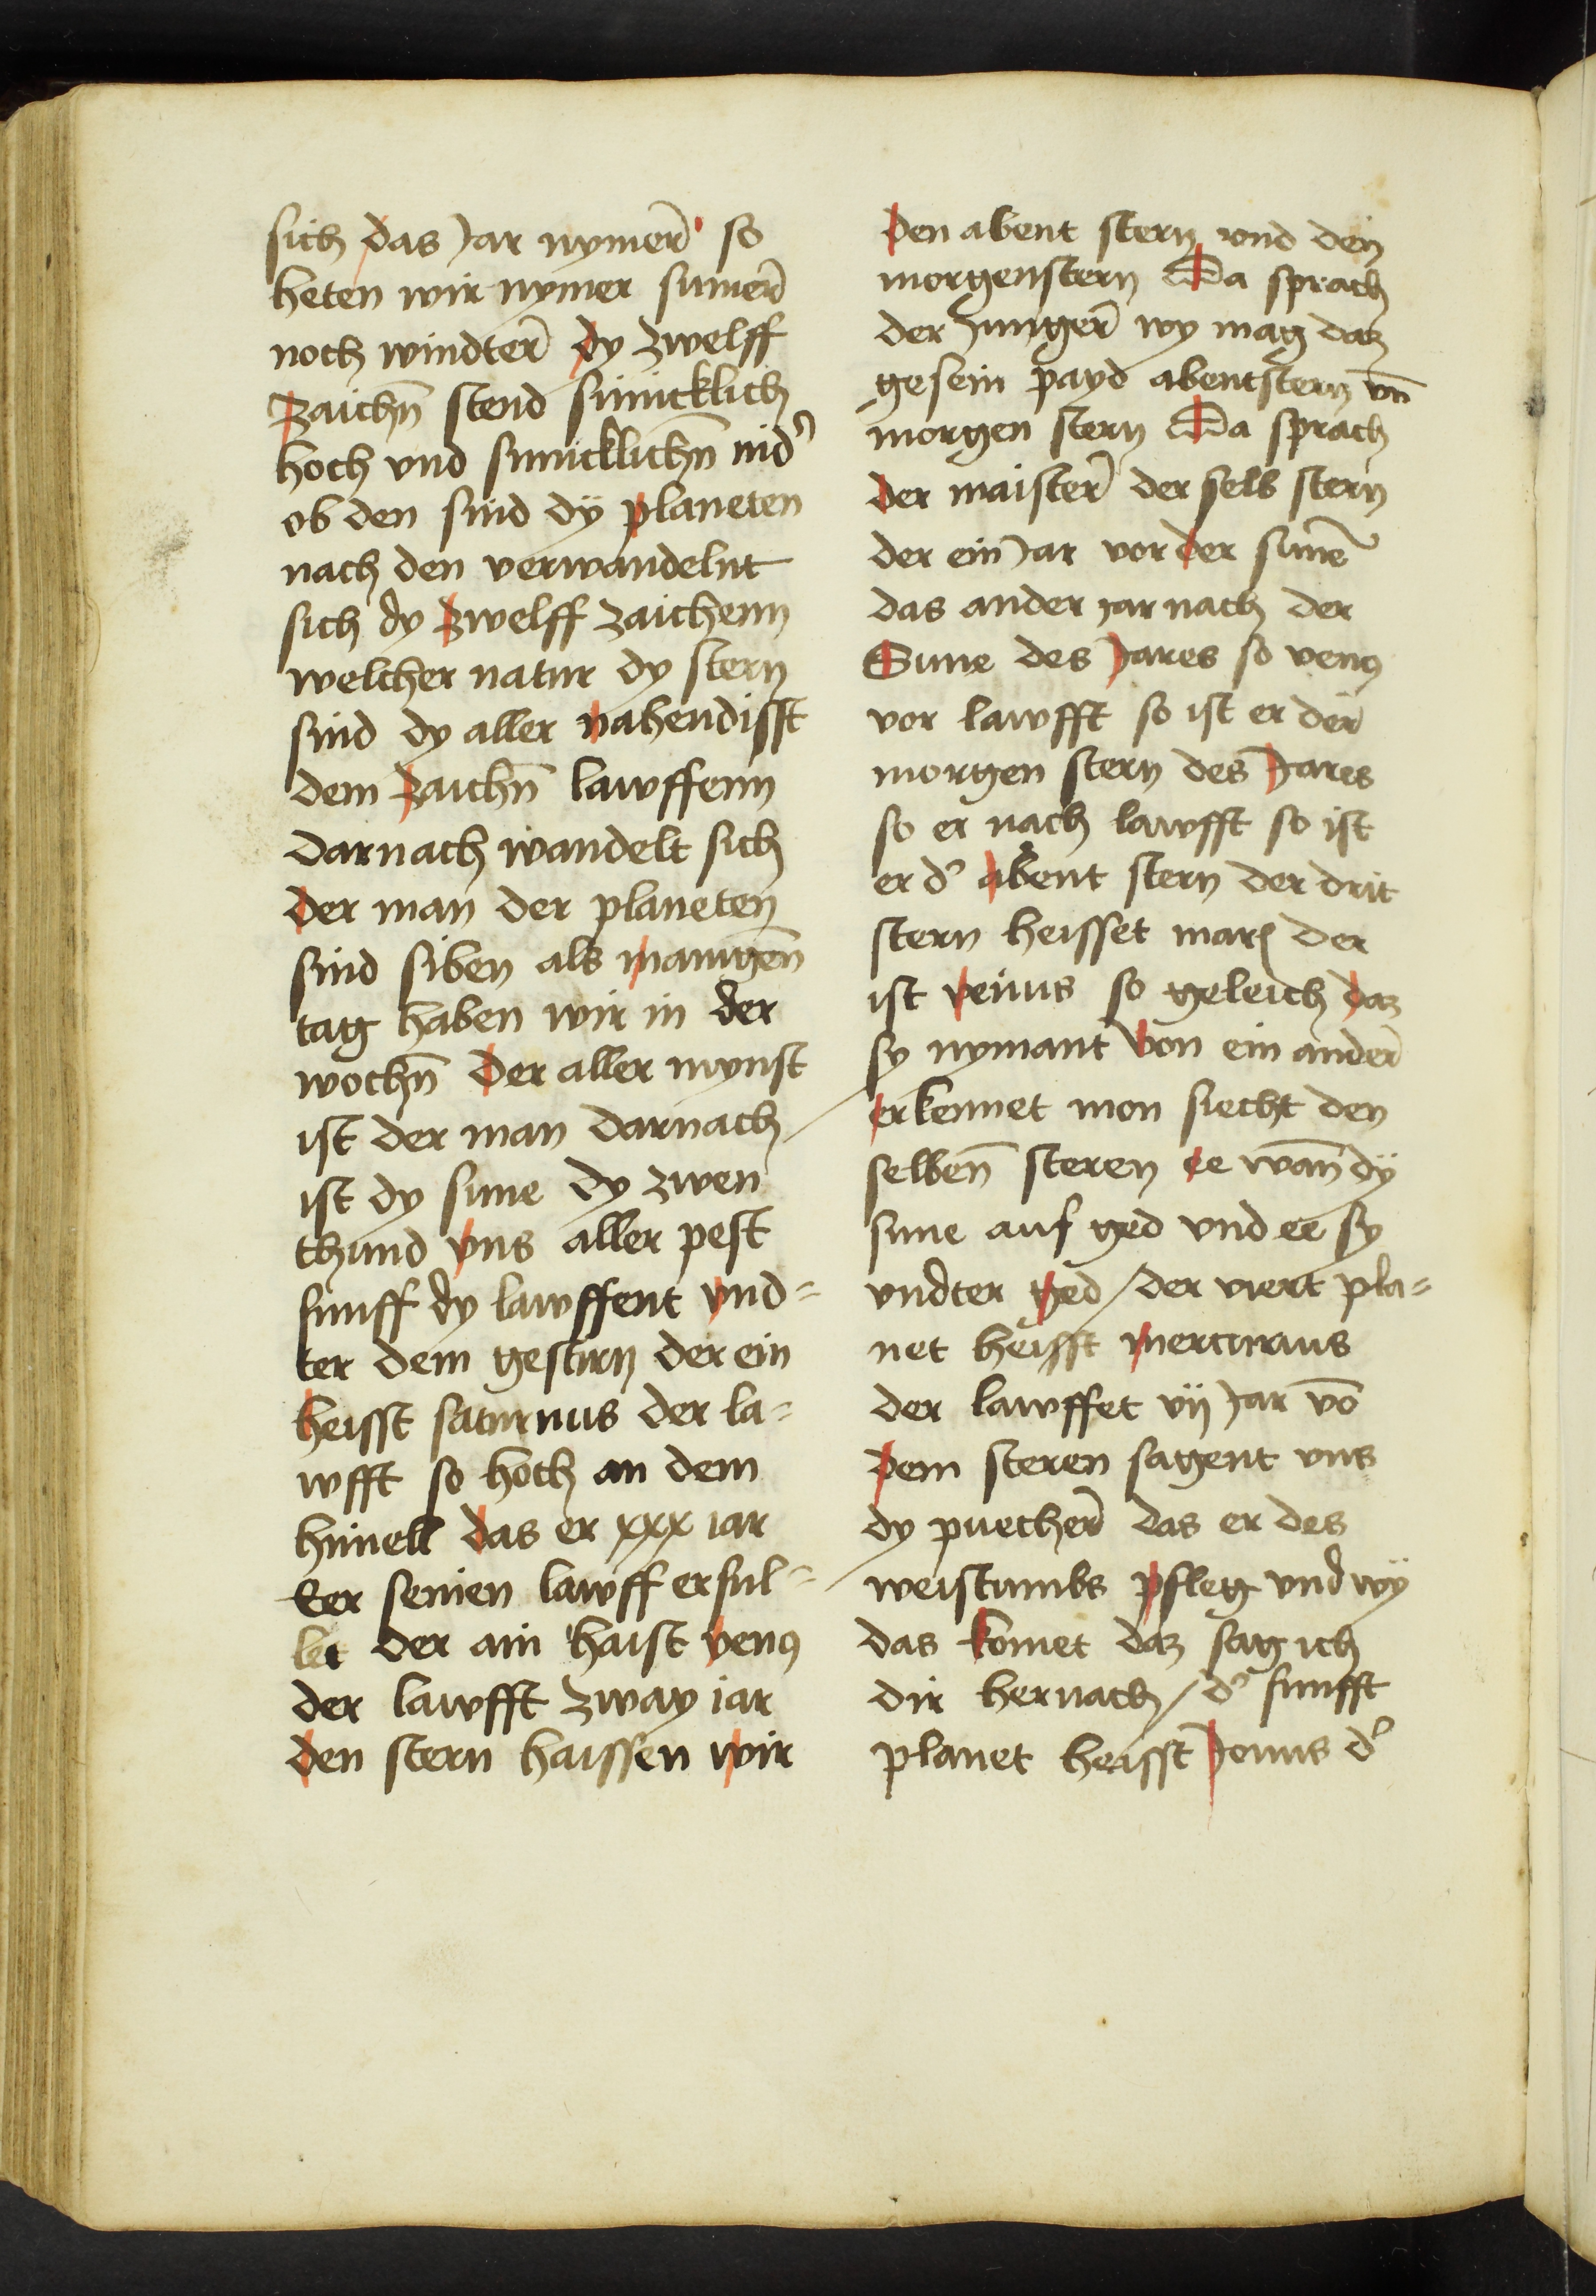 sich das Jar nymer̄ so
heten wir nymer sumer̄
noch windter̄ dy zwelff
zaichn̄ stend sumicklich
hoch vnd sumicklichn̄ nid᾽
ob den sind dÿ planeten
nach den verwandelnt
sich dy zwelff zaichenn
welcher natur dy stern
sind dy aller nahendisst
dem zaichn̄ lawffenn
darnach wandelt sich
der man der planeten̄
sind siben als manigen̄
tag haben wir in der
wochn̄ der aller mynst
ist der man darnach
ist dy sune dy zwen
thund vns aller pest
funff dy lawffent vnd=
ter dem gestirn der ein
heisst saturnus der la=
wfft so hoch an dem
himell das er xxx iar
Eer seinen lawff erful=
let der ain haist venꝰ
der lawfft zway iar
den stern haissen wir
den abent stern vnd den
morgenstern Da sprach
der Junger̄ wy mag daz
gesein payd abentstern vn̄
morgen stern Da sprach
der maister̄ der selb stern
der ein Jar vor der sunē
das ander iar nach der
Sune des Jares so venꝰ
vor lawfft so ist er der̄
morgen stern des Jares
so er nach lawfft so ist
er d᾽ abent stern der drit
stern heisset mars der
ist venus so geleich daz
sy nymant von ein ander̄
erkennet mon siecht den
selben̄ steren ee wan̄ dÿ
sune auf ged vnd ee sy
vndter ged / der viert pla=
net heisst mercurius
der lawffet vij Jar vō
dem steren sagent vns
dy puecher̄ das er des
weistumbs pfleg vnd wÿ
das komet daz sag ich
dir hernach / d᾽ funfft
planet heisst Jouus d᾽